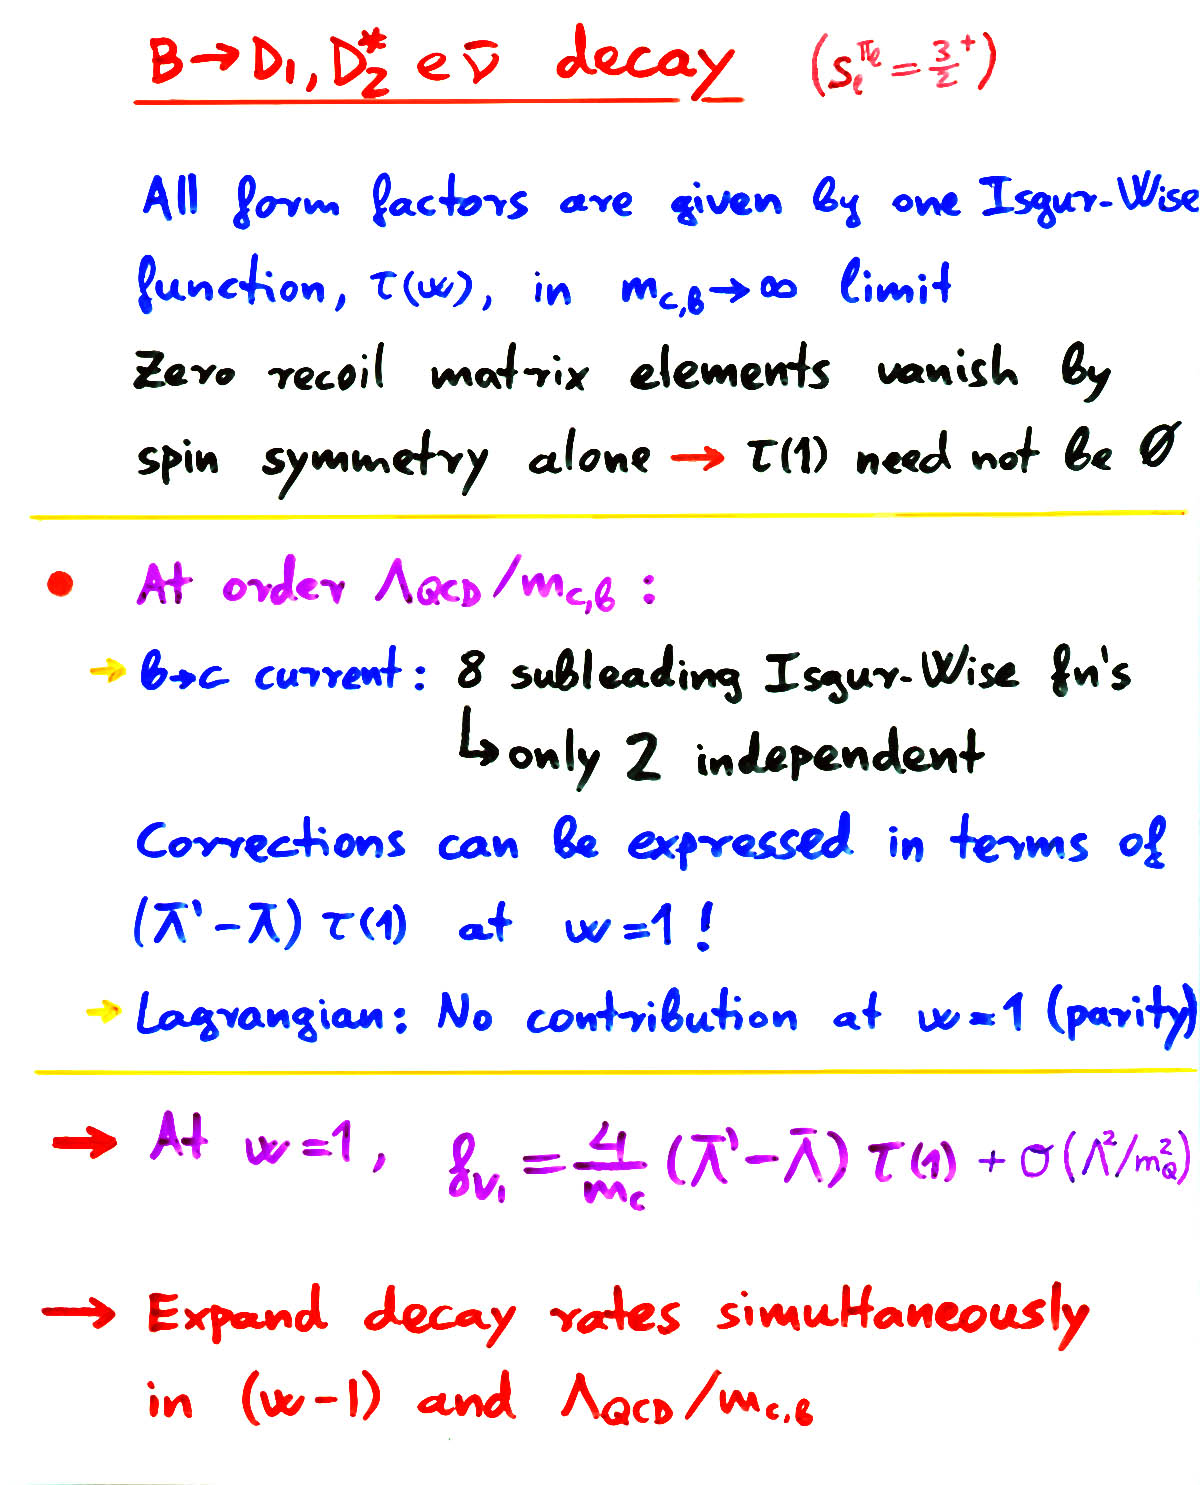 B→D₁, D₂* e ν̄ decay (s_ℓ^{π_ℓ} = 3/2⁺)
All form factors are given by one Isgur-Wise
function, τ(w), in m_{c,b}→∞ limit
Zero recoil matrix elements vanish by
spin symmetry alone → τ(1) need not be 0
• At order Λ_{QCD}/m_{c,b} :
→ b→c current: 8 subleading Isgur-Wise fn's
↳ only 2 independent
Corrections can be expressed in terms of
(Λ̄' - Λ̄) τ(1) at w=1 !
→ Lagrangian: No contribution at w=1 (parity)
→ At w=1, f_{V₁} = 4/m_c (Λ̄' - Λ̄) τ(1) + O(Λ²/m_Q²)
→ Expand decay rates simultaneously
in (w-1) and Λ_{QCD}/m_{c,b}